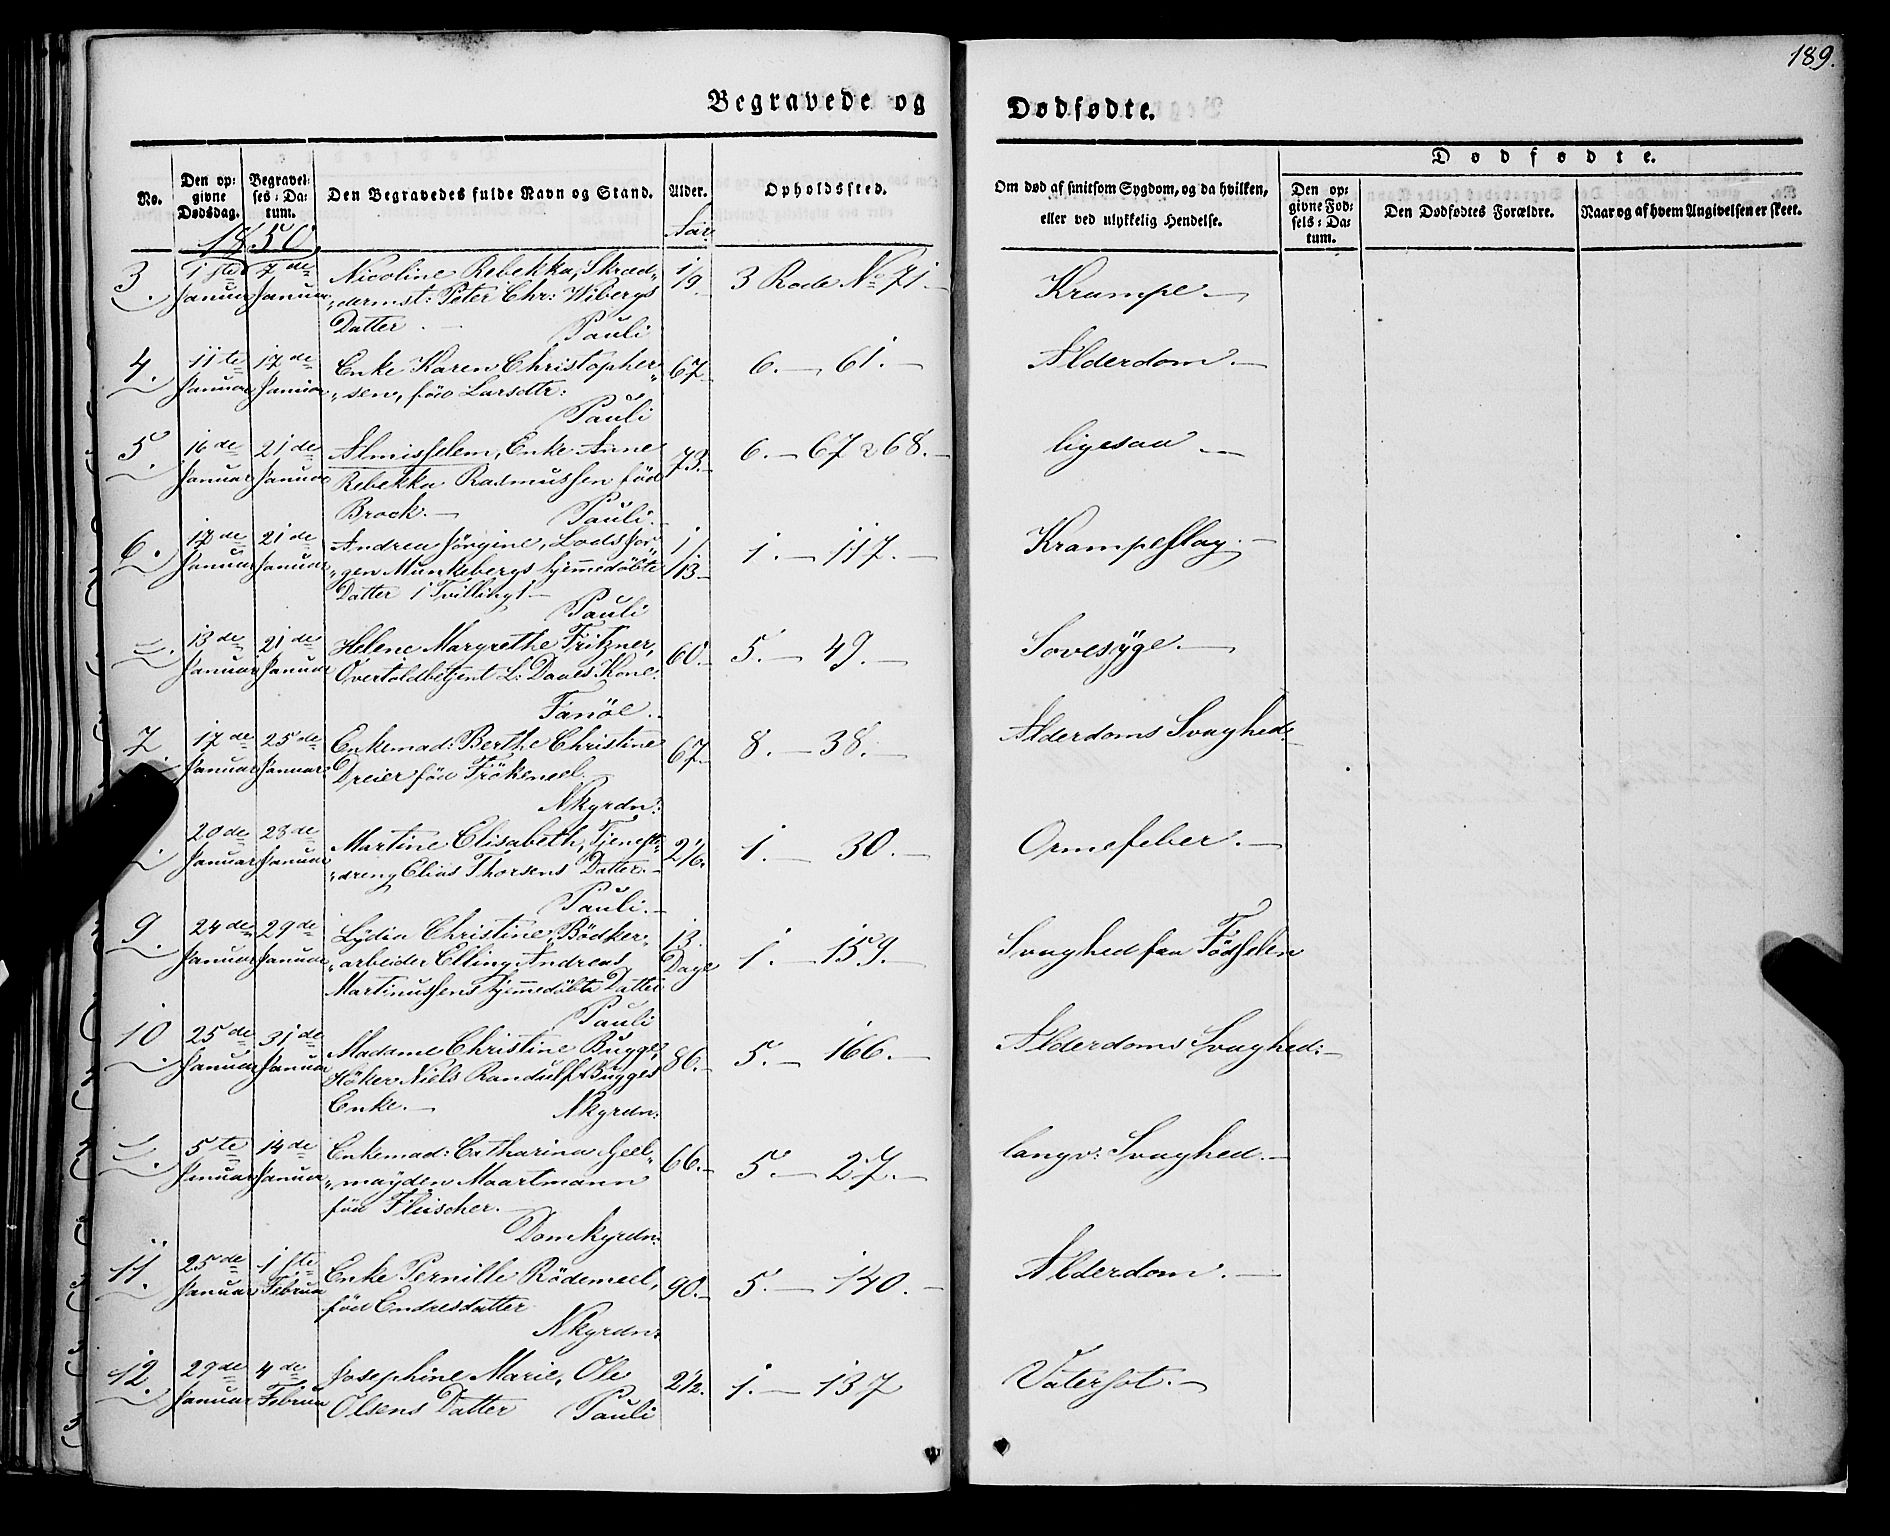 189.
Begravede og Dødfødte.
No.
Den op-
givne
Dødsdag.
Begravel-
ses-Da-
tum.
Den Begravedes fulde Navn og Stand.
Alder.
Opholdssted.
Om død af smitsom Sygdom, og da hvilken,
eller ved ulykkelig Hendelse.
Dødfødte.
Den op-
givne Fød-
sels-Da-
tum.
Den Dødfødtes Forældre.
Naar og af hvem Angivelsen er skeet.
1850.
Aar
3. 1ste Januar 7de Januar Nicoline Rebekka, Skræd- 1/9 3 Rode No 71. Krampe.
dermst: Peter Chr: Wibergs
Datter. Pauli
4. 11te Januar 17de Januar Enke Karen Christopher- 67. 6. 61. Alderdom.
sen, fød Larsdtr:
Pauli
5. 16de Januar 21de Januar Almisselem, Enke Anne 73. 6. 67 & 68. ligesaa
Rebekka Rasmussen fød
Brock. Pauli.
6. 17de Januar 21de Januar Andrea Jörgine, Lods Jör- 1/13 1. 117. Krampeslag.
gen Munkebergs hjemmedöbte
Datter 1 Tvilling
Pauli
13de Januar 21de Januar Helene Margrethe Fritzner, 60. 5. 49. Sovesÿge.
Overtoldbetjent L: Daaes Kone.
Fanöe.
7. 17de Januar 25de Januar: Enkemad: Berthe Christine 67. 8. 38. Alderdoms Svaghed.
Dreier fød Frökeneel.
Nkyrdn:
20de Januar 28de Januar Martine Elisabeth, Tjeneste- 2 1/6. 1. 30. Ormefeber.
dreng Elias Thorsens Datter.
Pauli.
9. 24de Januar 29de Januar Lÿdia Christine, Bödker- 13. Dage 1. 159. Svaghed fra Födselen
arbeider Elling Andreas
Martinussens hjemmedöbte Datter
Pauli
10. 25de Januar 31de Januar Madame Christine Bugge, 86. 5. 166. Alderdoms Svaghed.
Höker Niels Randulf Bugges
Enke. Nkyrdn:
5te Januar 14de Januar Enkemad: Catharina Geel- 66. 5. 27. langv: Svaghed.
mÿden Maartmann
fød Fleischer.
Domkyrdn:
11. 25de Januar 1ste Februa Enke Pernille Rödemeel, 90. 5. 140. Alderdom.
fød Endresdatter
Nkyrdn:
12. 29de Januar 4de Februa Josephine Marie, Ole 2 1/2. 1. 137 Vatersot.
Olsens Datter Pauli